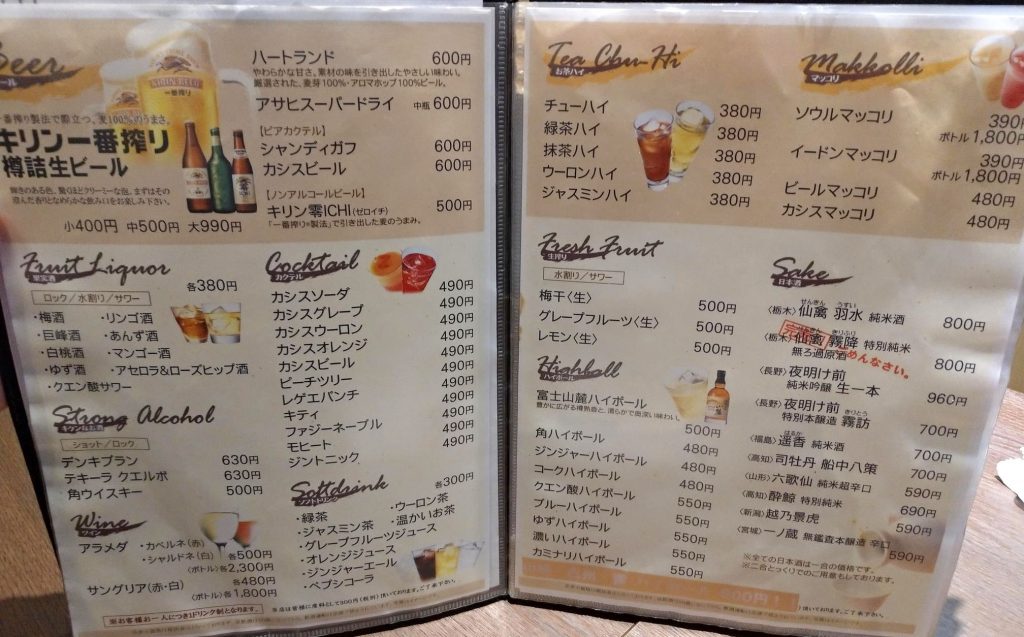 Beer
ビール
KIRIN BEER
一番搾り
一番搾り製法で際立つ、麦100%のうまさ。
キリン一番搾り
樽詰生ビール
輝きのある色、驚くほどクリーミーな泡。まずはその
澄んだ香りとなめらかな飲み口をお楽しみ下さい。
小400円 中500円 大990円
ハートランド 600円
やわらかな甘さ。素材の味を引き出したやさしい味わい。
厳選された、麦芽100%・アロマホップ100%ビール。
アサヒスーパードライ 中瓶 600円
[ビアカクテル]
シャンディガフ 600円
カシスビール 600円
[ノンアルコールビール]
キリン零ICHI(ゼロイチ) 500円
「一番搾り®製法」で引き出した麦のうまみ。
Fruit Liquor
果実酒
各380円
ロック/水割り/サワー
・梅酒 ・リンゴ酒
・巨峰酒 ・あんず酒
・白桃酒 ・マンゴー酒
・ゆず酒 ・アセロラ&ローズヒップ酒
・クエン酸サワー
Strong Alcohol
ショット/ロック
デンキブラン 630円
テキーラ クエルボ 630円
角ウイスキー 500円
Wine
ワイン
アラメダ ・カベルネ(赤)
・シャルドネ(白) 各500円
(ボトル)各2,300円
サングリア(赤・白) 各480円
(ボトル)各1,800円
※お客様お一人につき1ドリンク制となります。
Cocktail
カクテル
カシスソーダ 490円
カシスグレープ 490円
カシスウーロン 490円
カシスオレンジ 490円
カシスビール 490円
ピーチツリー 490円
レゲエパンチ 490円
キティ 490円
ファジーネーブル 490円
モヒート 490円
ジントニック
Softdrink
ソフトドリンク
各300円
・緑茶 ・ウーロン茶
・ジャスミン茶 ・温かいお茶
・グレープフルーツジュース
・オレンジジュース
・ジンジャーエール
・ペプシコーラ
Tea Chu-Hi
お茶ハイ
チューハイ 380円
緑茶ハイ 380円
抹茶ハイ 380円
ウーロンハイ 380円
ジャスミンハイ 380円
Makkolli
マッコリ
ソウルマッコリ 390円
ボトル 1,800円
イードンマッコリ 390円
ボトル 1,800円
ビールマッコリ 480円
カシスマッコリ 480円
Fresh Fruit
生搾り
水割り/サワー
梅干〈生〉 500円
グレープフルーツ〈生〉 500円
レモン〈生〉 500円
Highball
ハイボール
富士山麓ハイボール
豊かに広がる樽熟香と、濃らかで奥深い味わい。
500円
角ハイボール 480円
ジンジャーハイボール 480円
コークハイボール 480円
クエン酸ハイボール 550円
ブルーハイボール 550円
ゆずハイボール 550円
濃いハイボール 550円
カミナリハイボール 550円
Sake
日本酒
〈栃木〉仙禽 羽水 純米酒 800円
せんきん うすい
〈栃木〉仙禽 霧降 特別純米
きりふり
無ろ過原酒 800円
ごめんなさい。
〈長野〉夜明け前
純米吟醸 生一本 960円
〈長野〉夜明け前
特別本醸造 霧訪 700円
きりとう
〈福島〉遥香 純米酒 700円
はるか
〈高知〉司牡丹 船中八策 700円
〈山形〉六歌仙 純米超辛口 590円
〈高知〉酔鯨 特別純米 690円
〈新潟〉越乃景虎 590円
〈宮城〉一ノ蔵 無鑑査本醸造 辛口 590円
※全ての日本酒は一合の価格です。
※二合とっくりでのご用意もしております。